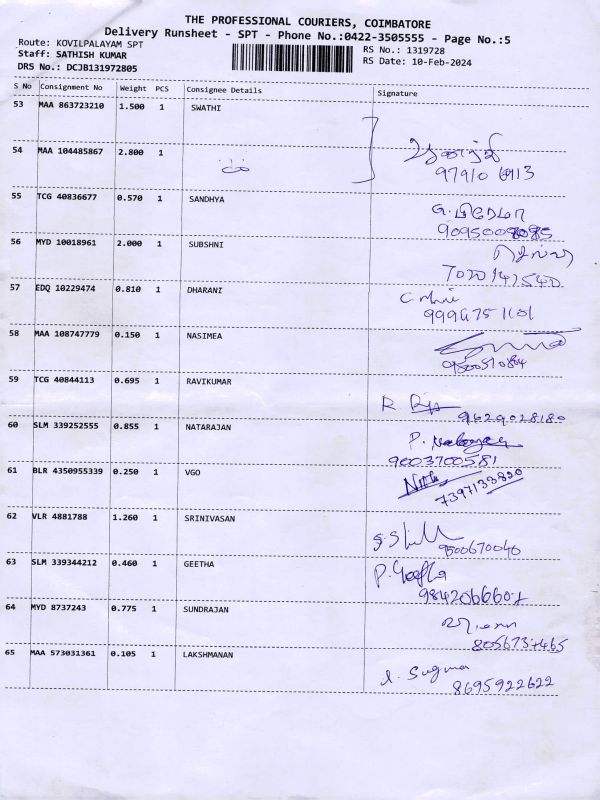 THE PROFESSIONAL COURIERS, COIMBATORE
Delivery Runsheet - SPT - Phone No.:0422-3505555 - Page No.:5
Route: KOVILPALAYAM SPT
RS No.: 1319728
Staff: SATHISH KUMAR
RS Date: 10-Feb-2024
DRS No.: DCJB131972805
S No Consignment No Weight PCS Consignee Details Signature
53 MAA 863723210 1.500 1 SWATHI
54 MAA 104485867 2.800 1
55 TCG 40836677 0.570 1 SANDHYA
56 MYD 10018961 2.000 1 SUBSHNI
7020142540
57 EDQ 10229474 0.810 1 DHARANI
9994751101
58 MAA 108747779 0.150 1 NASIMEA
59 TCG 40844113 0.695 1 RAVIKUMAR
9629028180
60 SLM 339252555 0.855 1 NATARAJAN
9003700581
61 BLR 4350955339 0.250 1 VGO
7397133820
62 VLR 4881788 1.260 1 SRINIVASAN
9500670046
63 SLM 339344212 0.460 1 GEETHA
P. Geetha
64 MYD 8737243 0.775 1 SUNDRAJAN
8056737465
65 MAA 573031361 0.105 1 LAKSHMANAN
8695922622